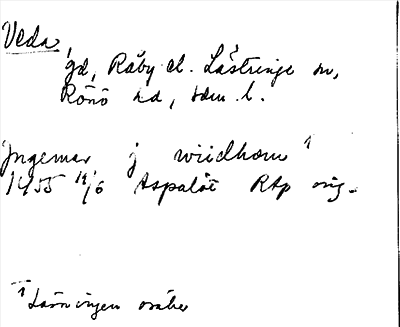 Veda
gd, Råby el. Lästringe sn,
Rönö hd, Söm. l.
Jngemar j wiidhom 1
1455 14/6 Aspalöt RAp orig.
1 Läsningen osäker